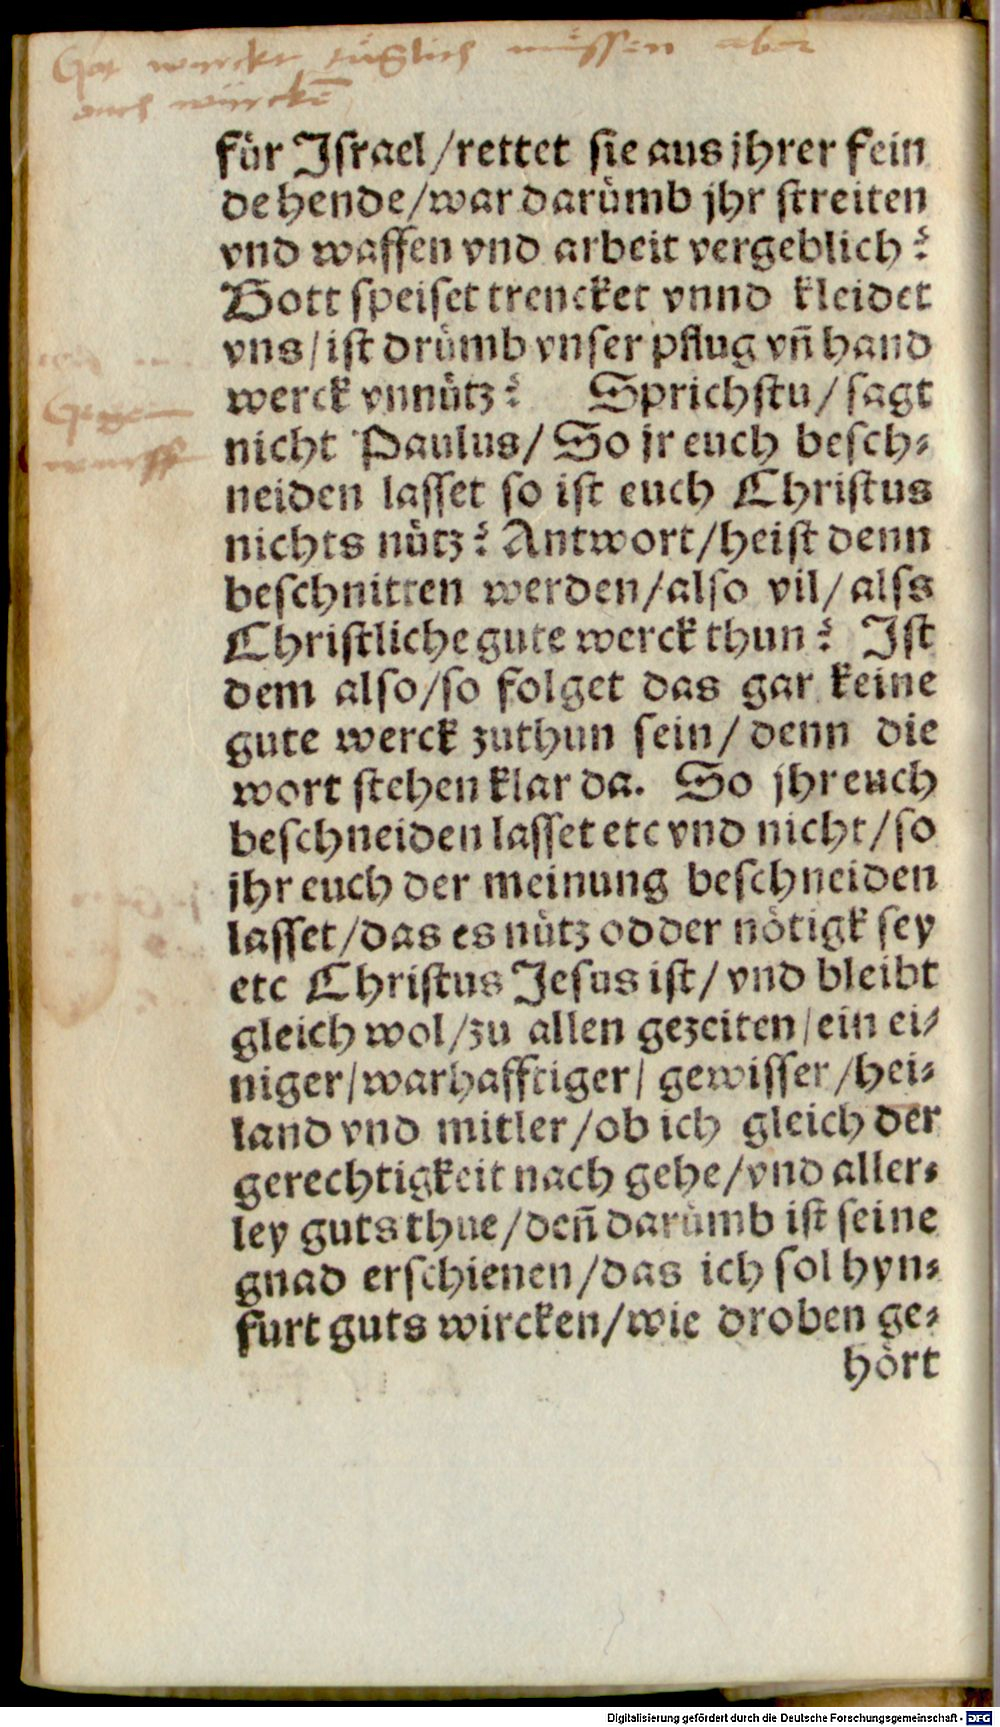 Got wirckt täglich müssen aber
auch wircke͞
für Israel/rettet sie aus jhrer fein
de hende/war darümb jhr streiten
vnd waffen vnd arbeit vergeblich?
Gott speiset trencket vnnd kleidet
vns/ist drümb vnser pflug vn̄ hand
werck vnnütz? Sprichstu/sagt
Gegen
wurff
nicht Paulus/So jr euch besch⸗
neiden lasset so ist euch Christus
nichts nütz? Antwort/heist denn
beschnitten werden/also vil/alss
Christliche gute werck thun? Ist
dem also/so folget das gar keine
gute werck zuthun sein/denn die
wort stehen klar da. So jhr euch
beschneiden lasset etc vnd nicht/so
jhr euch der meinung beschneiden
lasset/das es nütz odder nötigk sey
etc Christus Jesus ist/vnd bleibt
gleich wol/zu allen gezeiten/ein ei⸗
niger/warhafftiger/gewisser/hei⸗
land vnd mitler/ob ich gleich der
gerechtigkeit nach gehe/vnd aller⸗
ley guts thue/den̄ darümb ist seine
gnad erschienen/das ich sol hyn⸗
furt guts wircken/wie droben ge⸗
hört
Digitalisierung gefördert durch die Deutsche Forschungsgemeinschaft - DFG